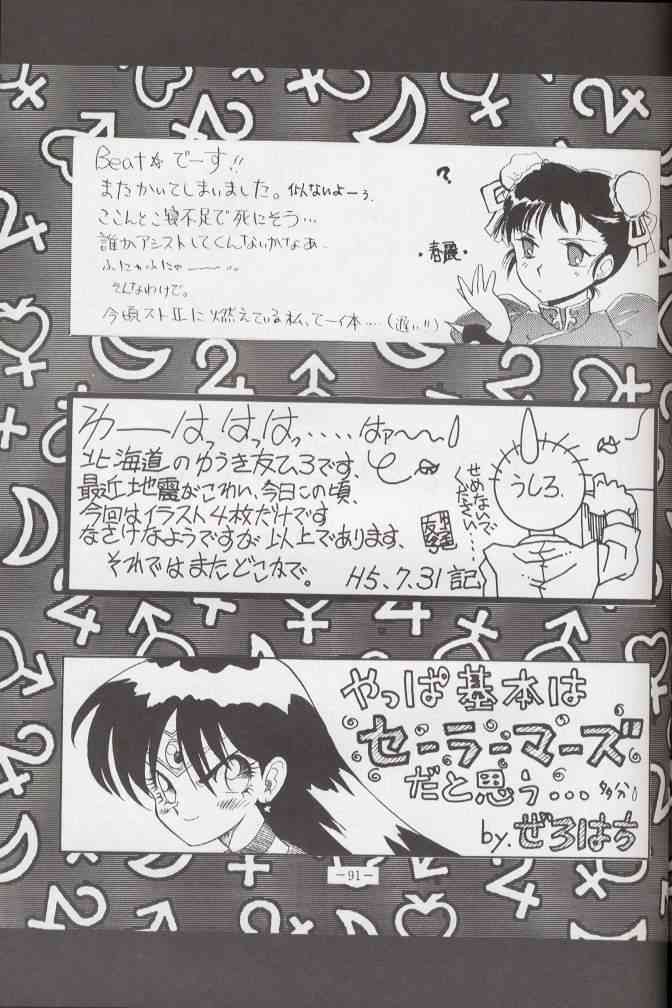 Beat☆でーす!!
またかいてしまいました。似んないよーぅ.
ここんとこ寝不足で死にそう…
誰かアシストしてくんないかなあ.
ふにゃふにゃ〜〜…
そんなわけで。
今頃ストⅡに燃えている私って一体‥‥(遅い!!)
?
・春麗・
わーはっはっはっ‥‥はァ〜〜。
北海道のゆうき友ひろです、
最近地震がこわい、今日この頃、
今回はイラスト4枚だけです
なさけないようですが以上であります、
それではまたどこかで。 H5、7.31記
せめないで
ください‥‥
うしろ.
やっぱ基本は
セーラーマーズ
だと思う... 多分。
by. ぜろはち
―91―